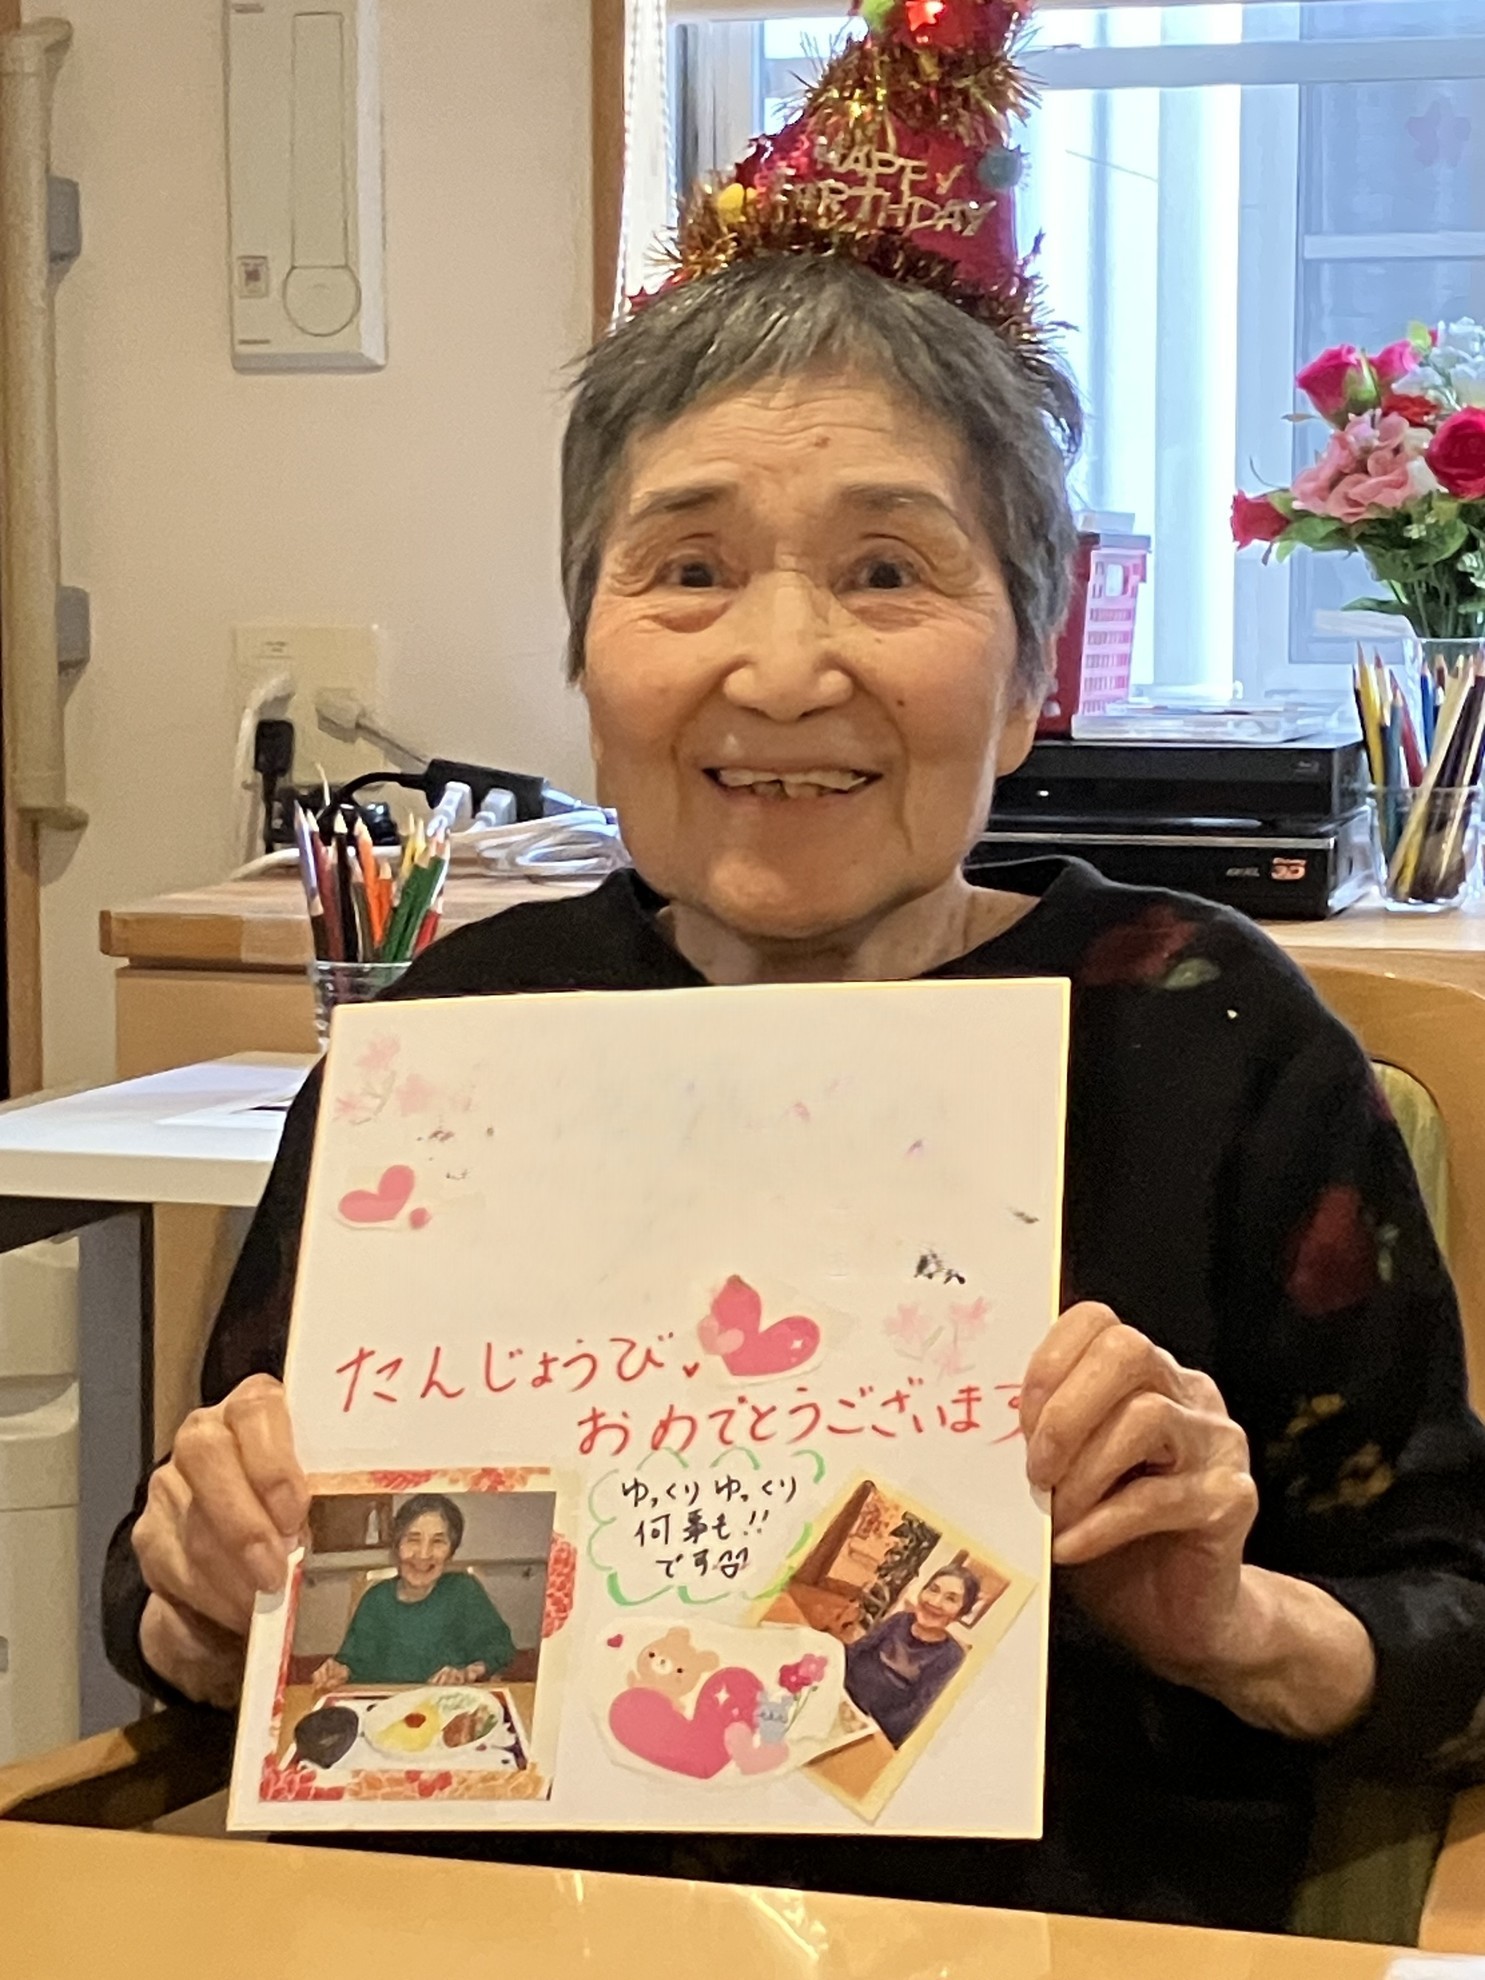 HAPPY
BIRTHDAY
たんじょうび
おめでとうございます
ゆっくりゆっくり
何事も!!
です